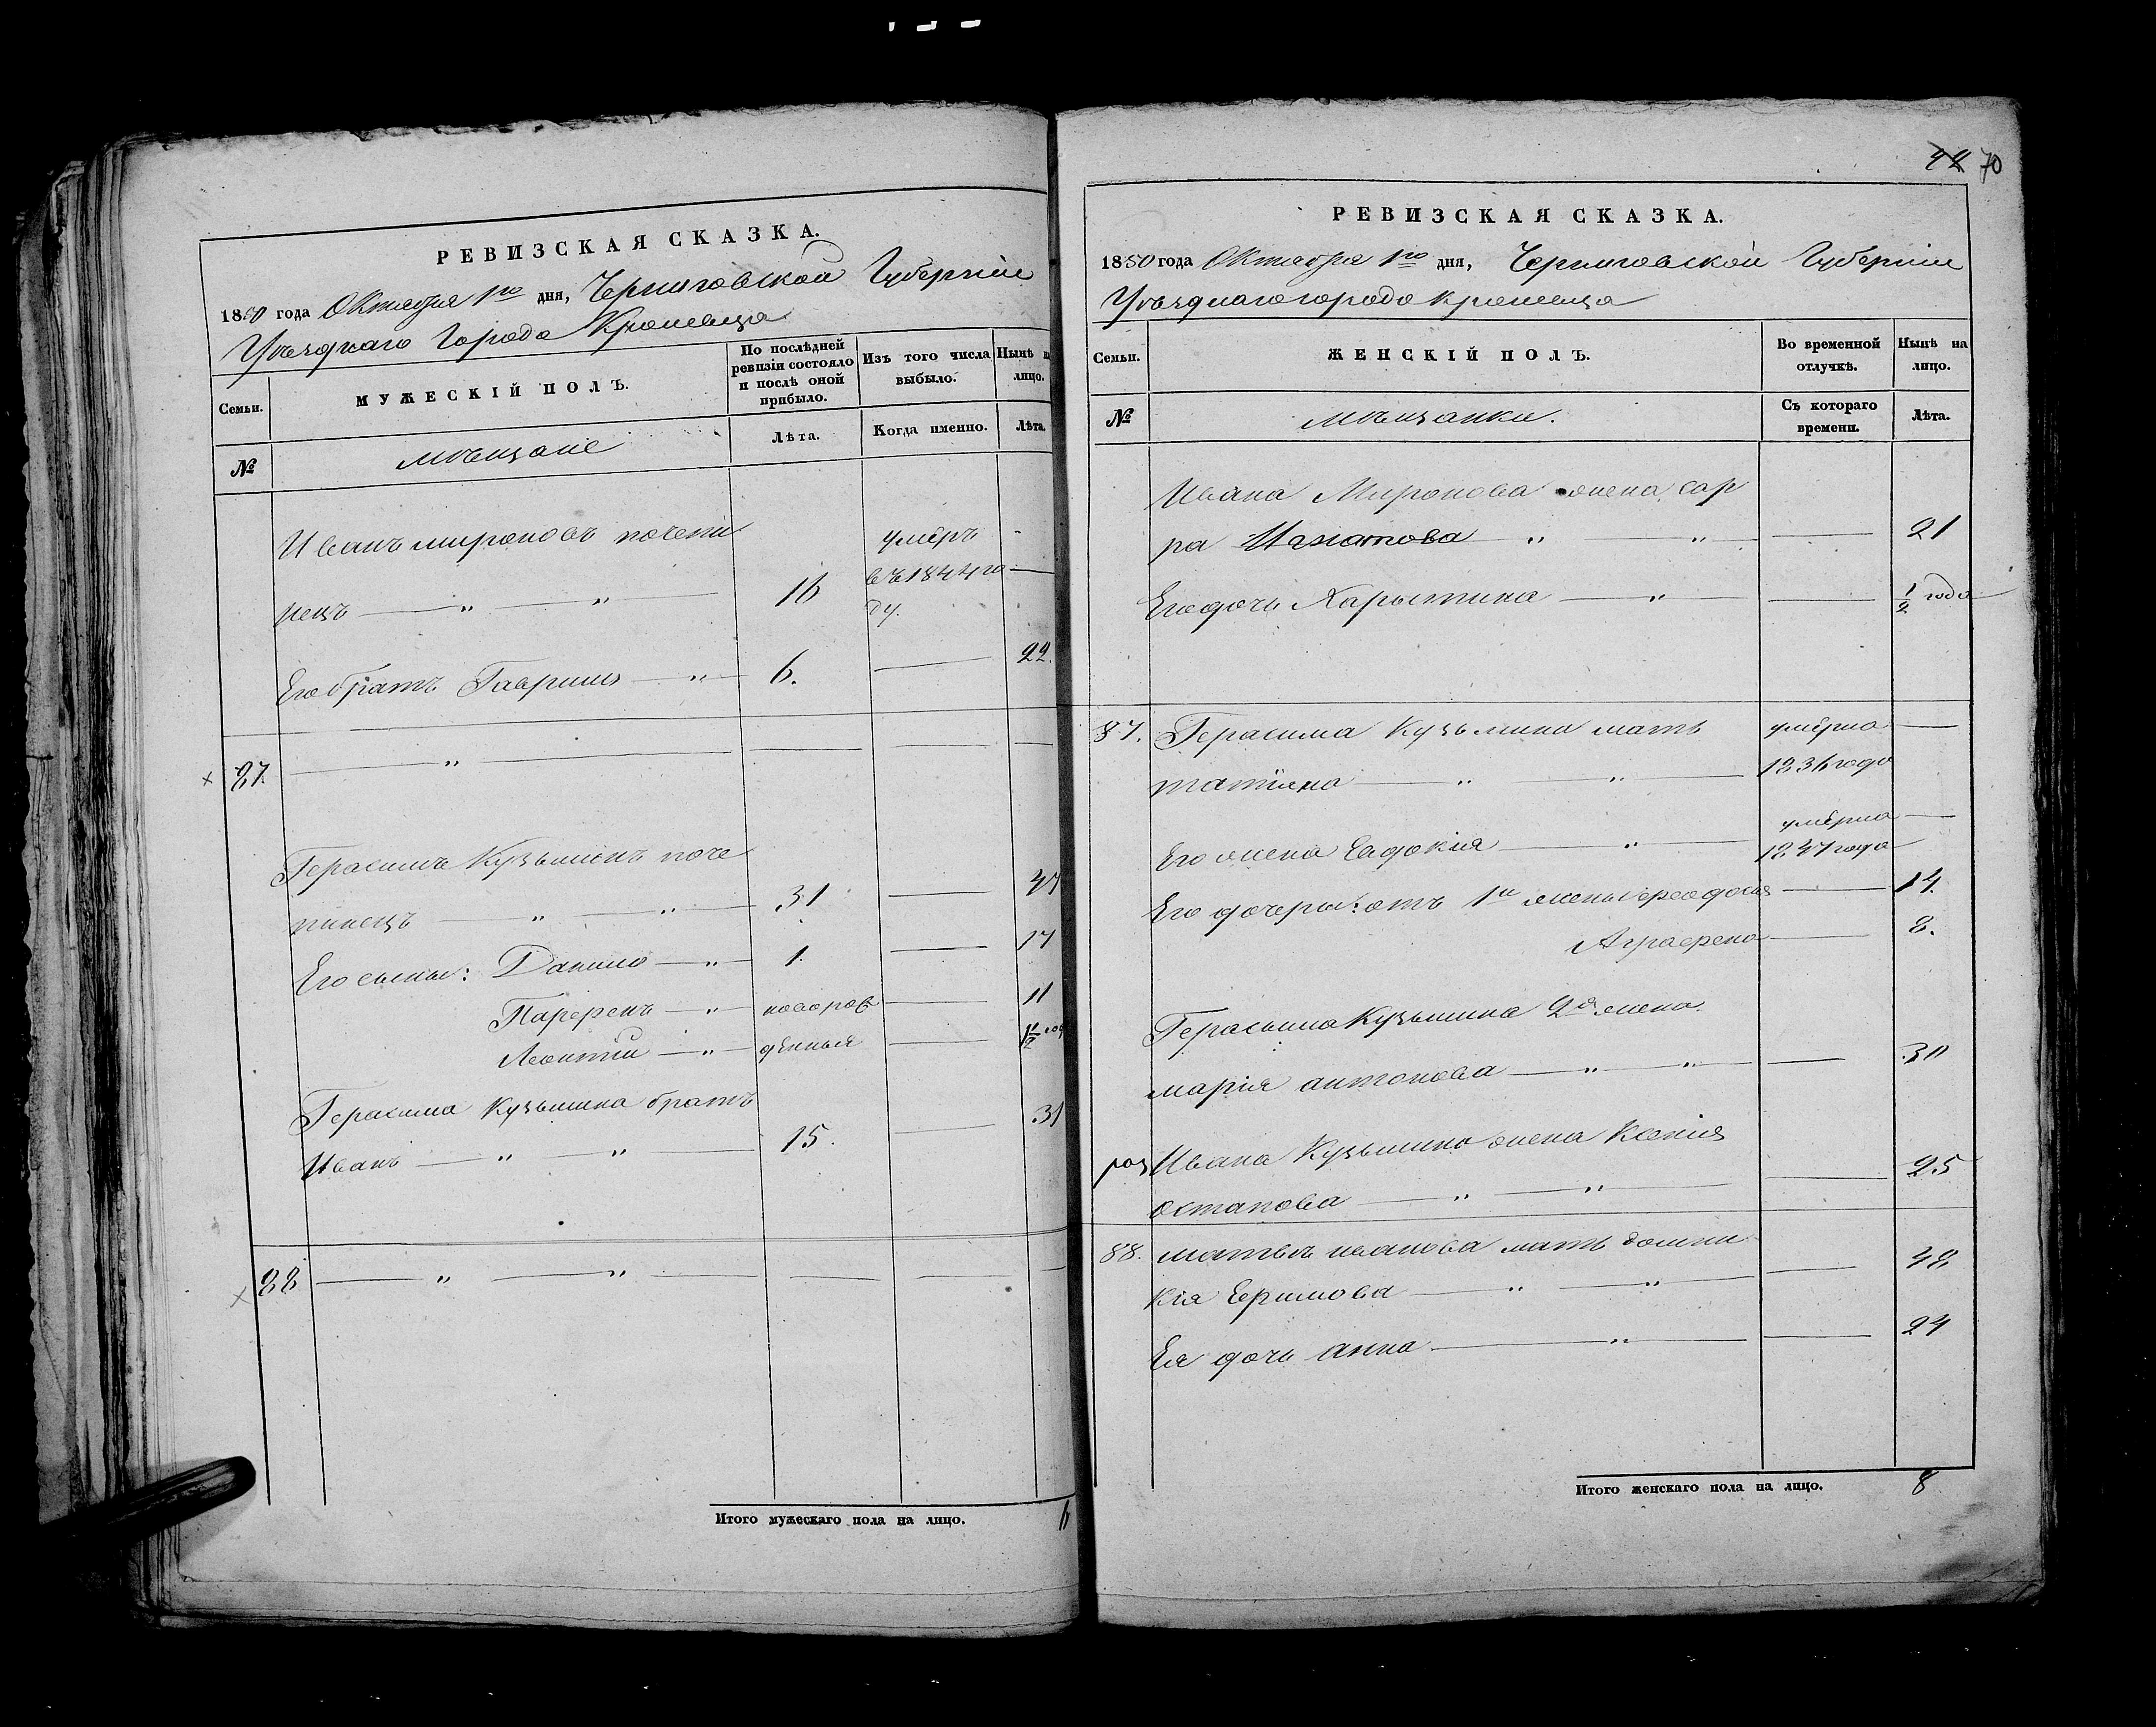 РЕВИЗСКАЯ СКАЗКА.
1850 года Октября 1го дня, Черниговской Губерніи
Уѣзднаго Города Кролевца
Семьи.
МУЖЕСКІЙ ПОЛЪ.
По послѣдней ревизіи состояло и послѣ оной прибыло.
Изъ того числа выбыло.
Нынѣ на лицо.
№
мѣщане
Лѣта.
Когда именно.
Лѣта.
Иванъ мироновъ
умеръ
16
въ 1844 го
ду.
Его братъ Гаврило — „ — 6. — 22.
87. — „ —
Герасимъ Кузьминъ поче
пинецъ — „ — „ — 31 — 47
Его сыны: Данило — „ — 1. — 17
Парфенъ — „ — новорож — 11
Леонтій — „ — денныя — 1/2 год
Герасима Кузьмина братъ
Иванъ — „ — „ — 15. — 31
88 — „ — „ —
Итого мужескаго пола на лицо. 6
70
РЕВИЗСКАЯ СКАЗКА.
1850 года Октября 1го дня, Черниговской Губерніи
Уѣзднаго города Кролевца
Семьи.
ЖЕНСКІЙ ПОЛЪ.
Во временной отлучкѣ.
Нынѣ на лицо.
№
мѣщанки.
Съ котораго времени.
Лѣта.
Ивана Миронова жена
„ — „ — 21
Его дочь — „ — 1/2 года
87. Герасима Кузьмина мать умерла —
татіяна — „ — „ — 1836 года
умерла —
Его жена Евдокія — „ — 1847 года
Его дочери: отъ 1й жены Феодосія — 14.
Аграфена — 8.
Герасима Кузьмина 2я жена
марія антонова — „ — „ — 30
Ивана Кузьмина жена Ксенія
остапова — „ — „ — 25
88. иванова мать домни
кія Ефимова — „ — „ — 48
Ея дочь анна — „ — 24
Итого женскаго пола на лицо. 8